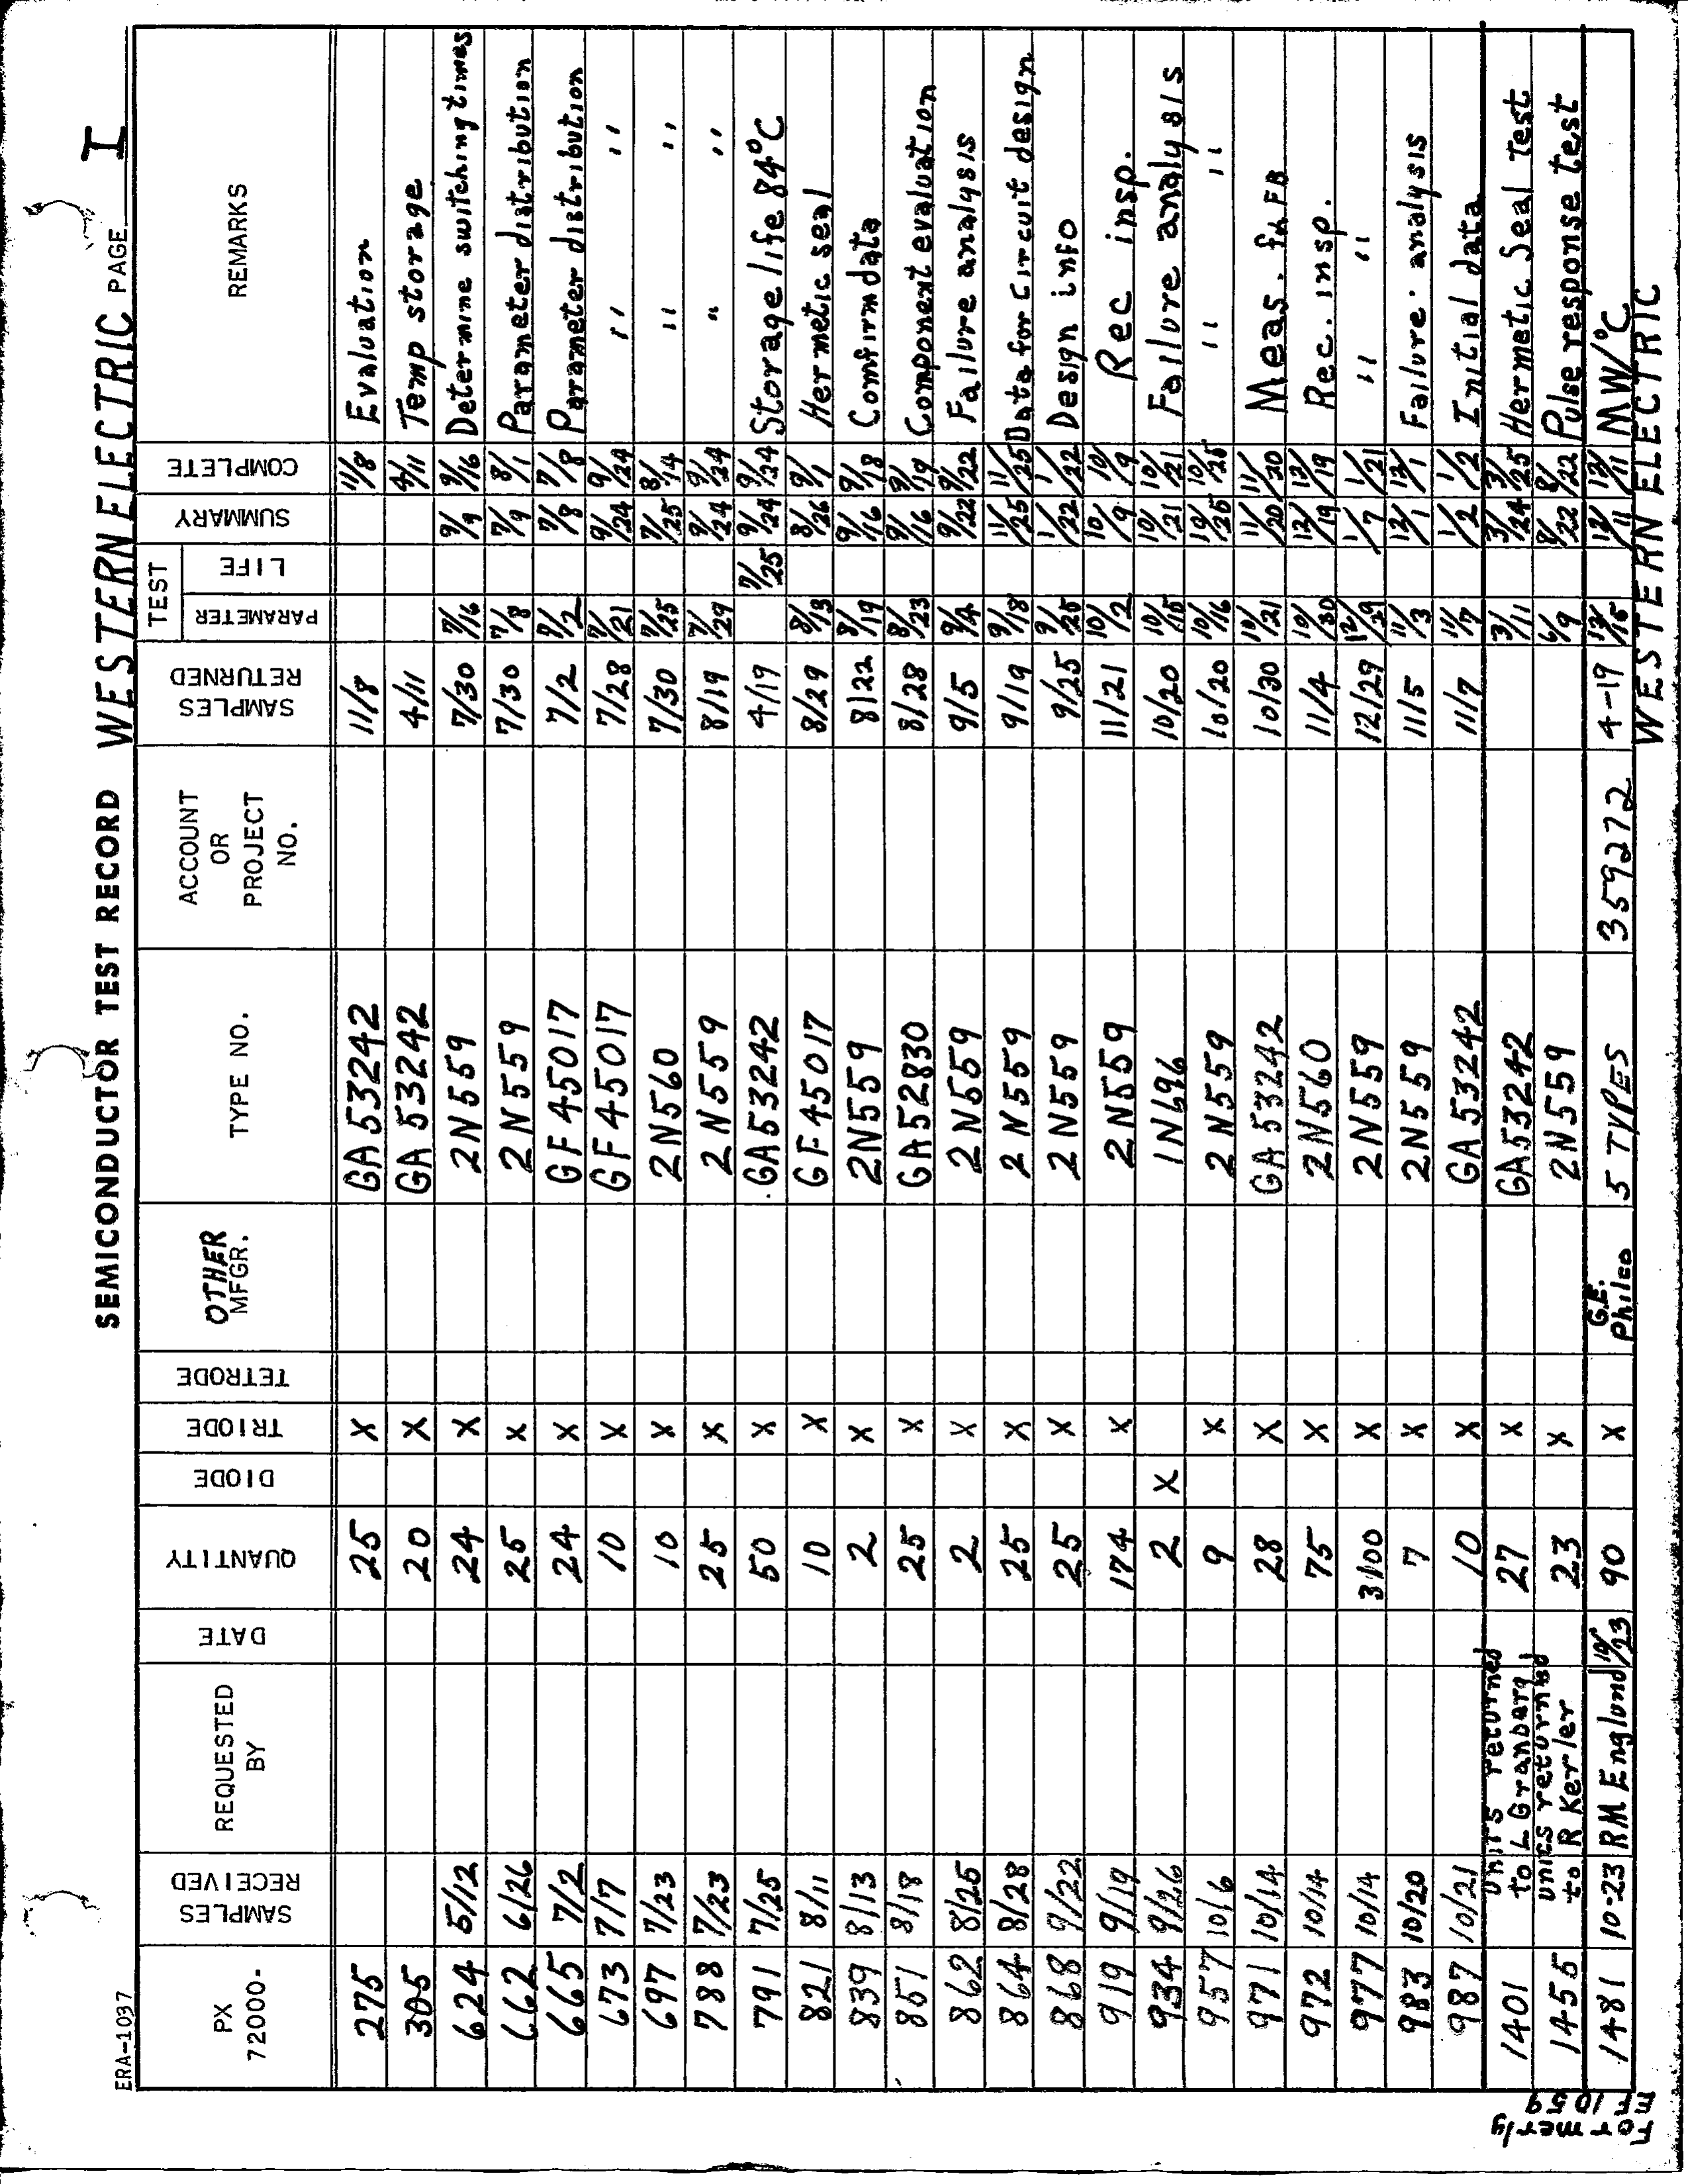 ERA-1037
SEMICONDUCTOR TEST RECORD WESTERN ELECTRIC PAGE I
PX 72000- SAMPLES RECEIVED REQUESTED BY DATE QUANTITY DIODE TRIODE TETRODE OTHER MFGR. TYPE NO. ACCOUNT OR PROJECT NO. SAMPLES RETURNED TEST PARAMETER LIFE SUMMARY COMPLETE REMARKS
275 25 X GA53242 11/8 11/8 Evaluation
305 20 X GA53242 4/11 4/11 Temp storage
624 5/12 24 X 2N559 7/30 7/16 9/9 9/16 Determine switching times
662 6/26 25 X 2N559 7/30 7/8 7/9 8/1 Parameter distribution
665 7/2 24 X GF45017 7/2 7/2 7/8 7/8 Parameter distribution
673 7/7 10 X GF45017 7/28 7/21 9/24 9/24 " "
697 7/23 10 X 2N560 7/30 7/25 7/25 8/14 " "
788 7/23 25 X 2N559 8/19 7/29 9/24 9/24 " "
791 7/25 50 X GA53242 4/19 7/25 9/24 9/24 Storage life 84°C
821 8/11 10 X GF45017 8/29 8/13 8/26 9/1 Hermetic seal
839 8/13 2 X 2N559 8/22 8/19 9/16 9/18 Comfirm data
851 8/18 25 X GA52830 8/28 8/23 9/16 9/19 Component evaluation
862 8/25 2 X 2N559 9/5 9/4 9/22 9/22 Failure analysis
864 8/28 25 X 2N559 9/19 9/18 11/25 11/25 Data for circuit design
868 9/22 25 X 2N559 9/25 9/25 1/22 1/22 Design info
919 9/19 174 X 2N559 11/21 10/2 10/9 10/9 Rec insp.
934 9/26 2 X 1N696 10/20 10/15 10/21 10/21 Failure analysis
957 10/6 9 X 2N559 10/20 10/16 10/25 10/25 " "
971 10/14 28 X GA53242 10/30 10/21 11/20 11/30 Meas. fh FB
972 10/14 75 X 2N560 11/4 10/30 12/19 12/19 Rec. insp.
977 10/14 3100 X 2N559 12/29 12/29 1/7 1/21 " "
983 10/20 7 X 2N559 11/5 11/3 12/1 12/1 Failure analysis
987 10/21 10 X GA53242 11/7 11/7 1/2 1/2 Initial data
1401 Units returned to L Granberg 27 X GA53242 3/11 3/24 3/25 Hermetic Seal Test
1455 units returned to R Kerler 23 X 2N559 6/9 8/22 8/22 Pulse response test
1481 10-23 RM Englund 10/23 90 X G.E. Philco 5 TYPES 359272 4-19 12/11 12/11 MW/°C
Formerly EE 1059
WESTERN ELECTRIC